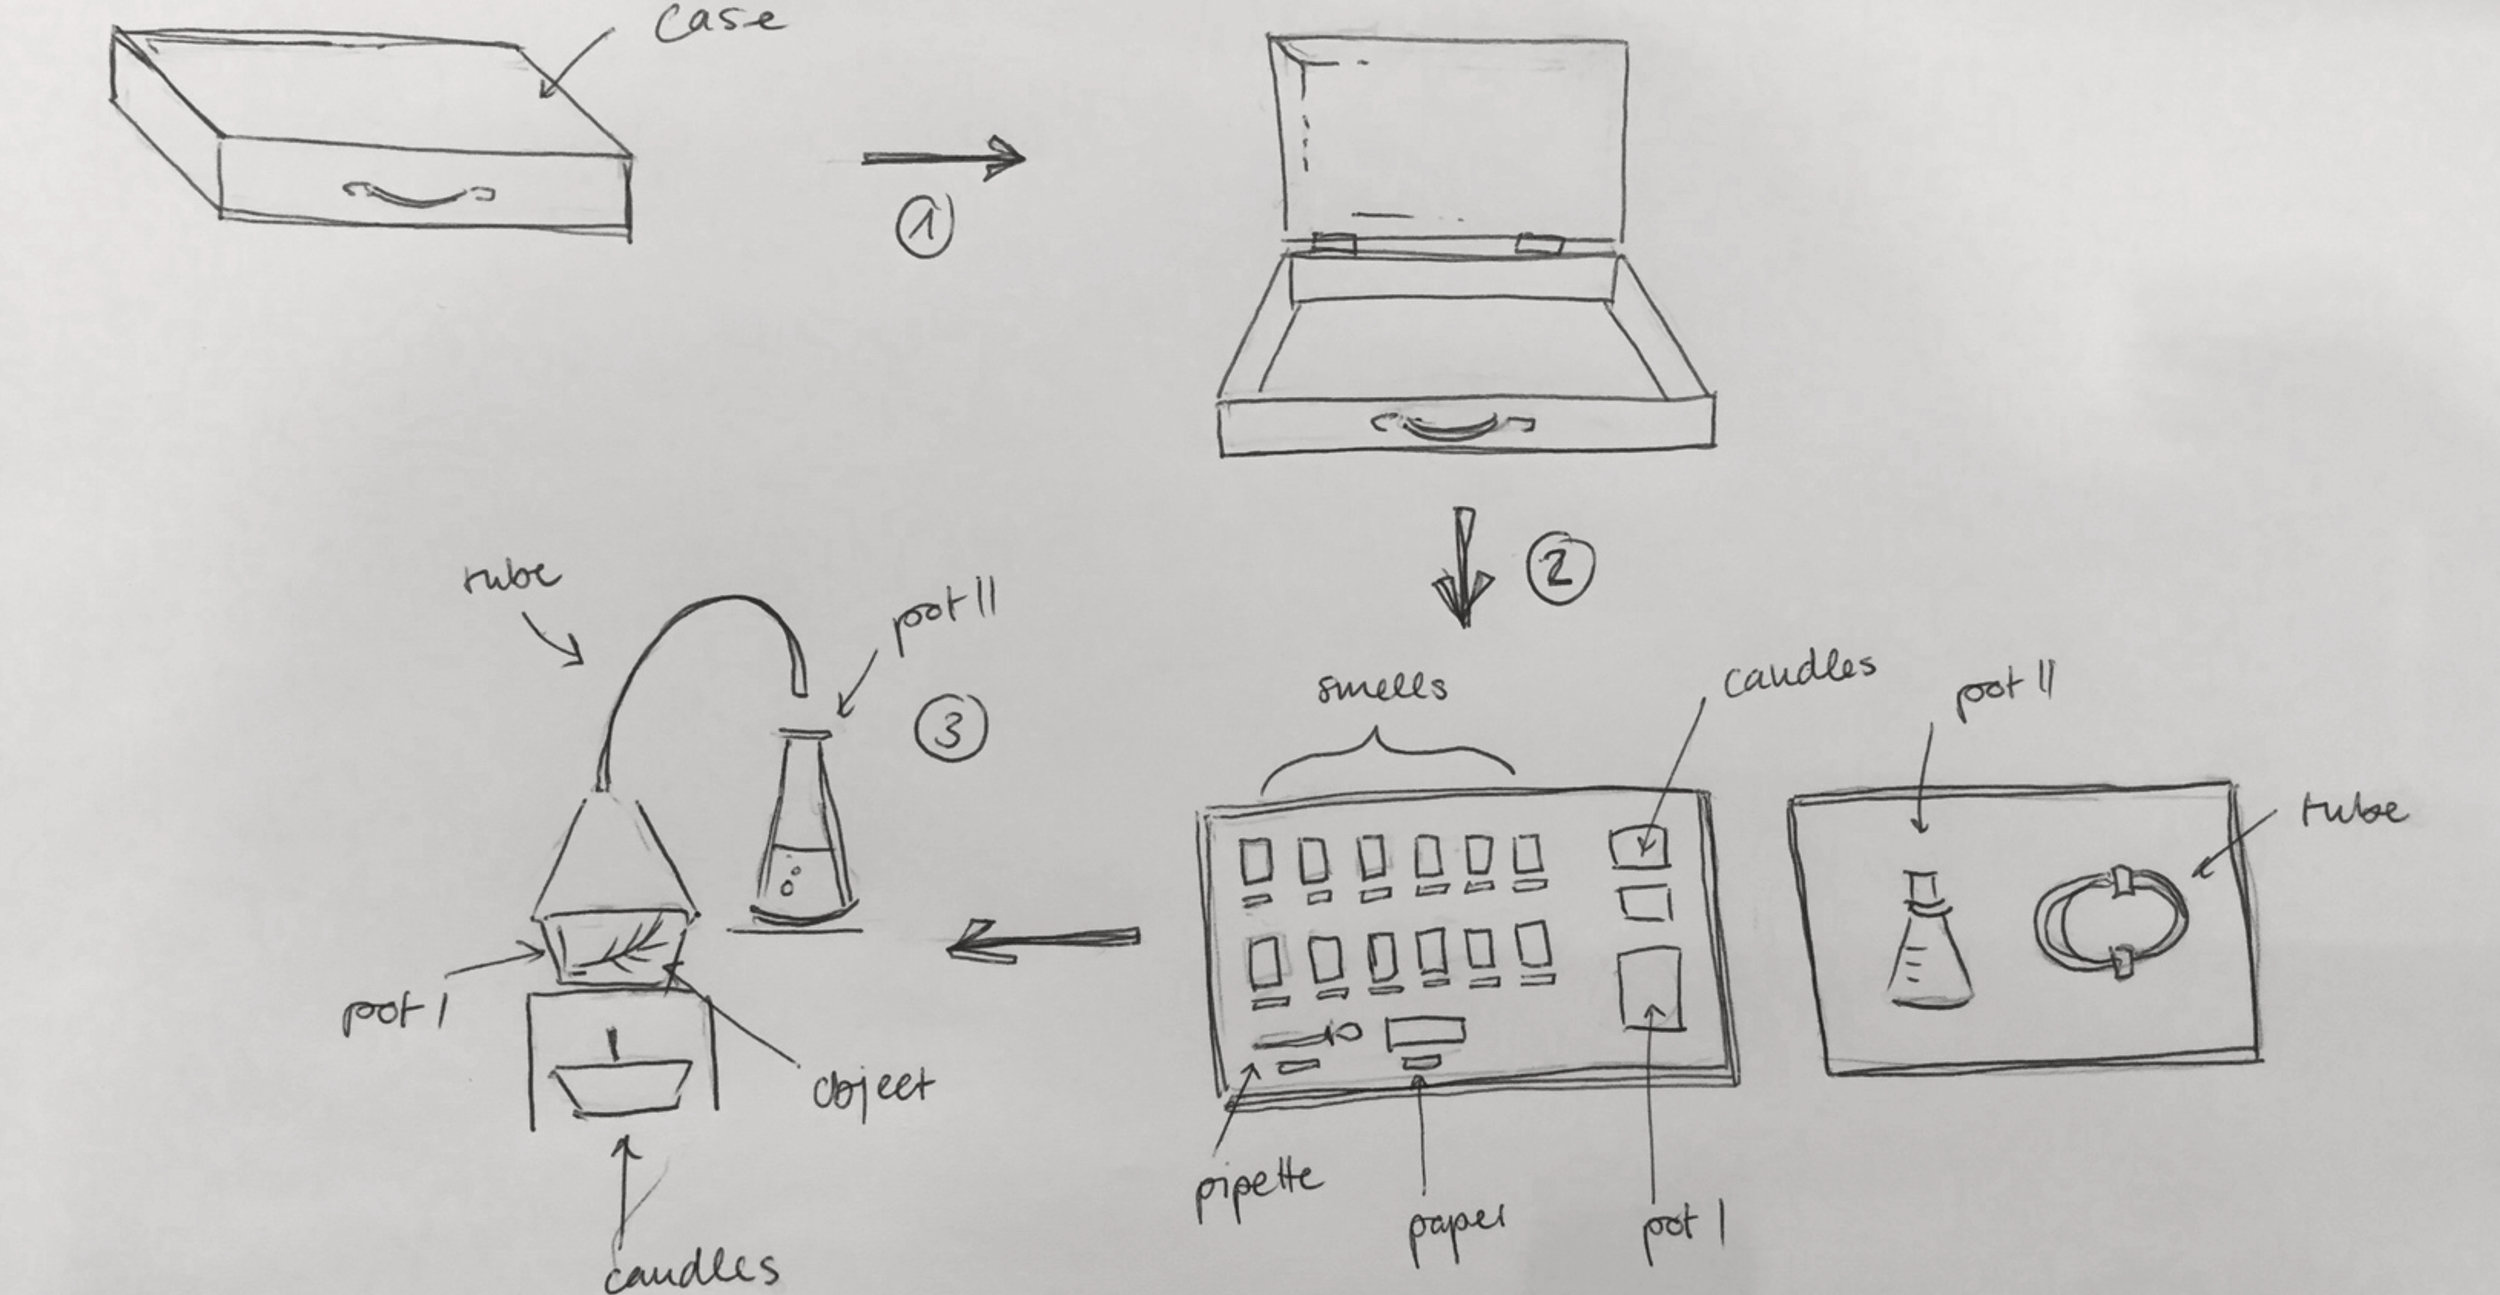 case
1
2
tube
pot II
3
smells
candles
pot II
tube
pot I
object
candles
pipette
paper
pot I